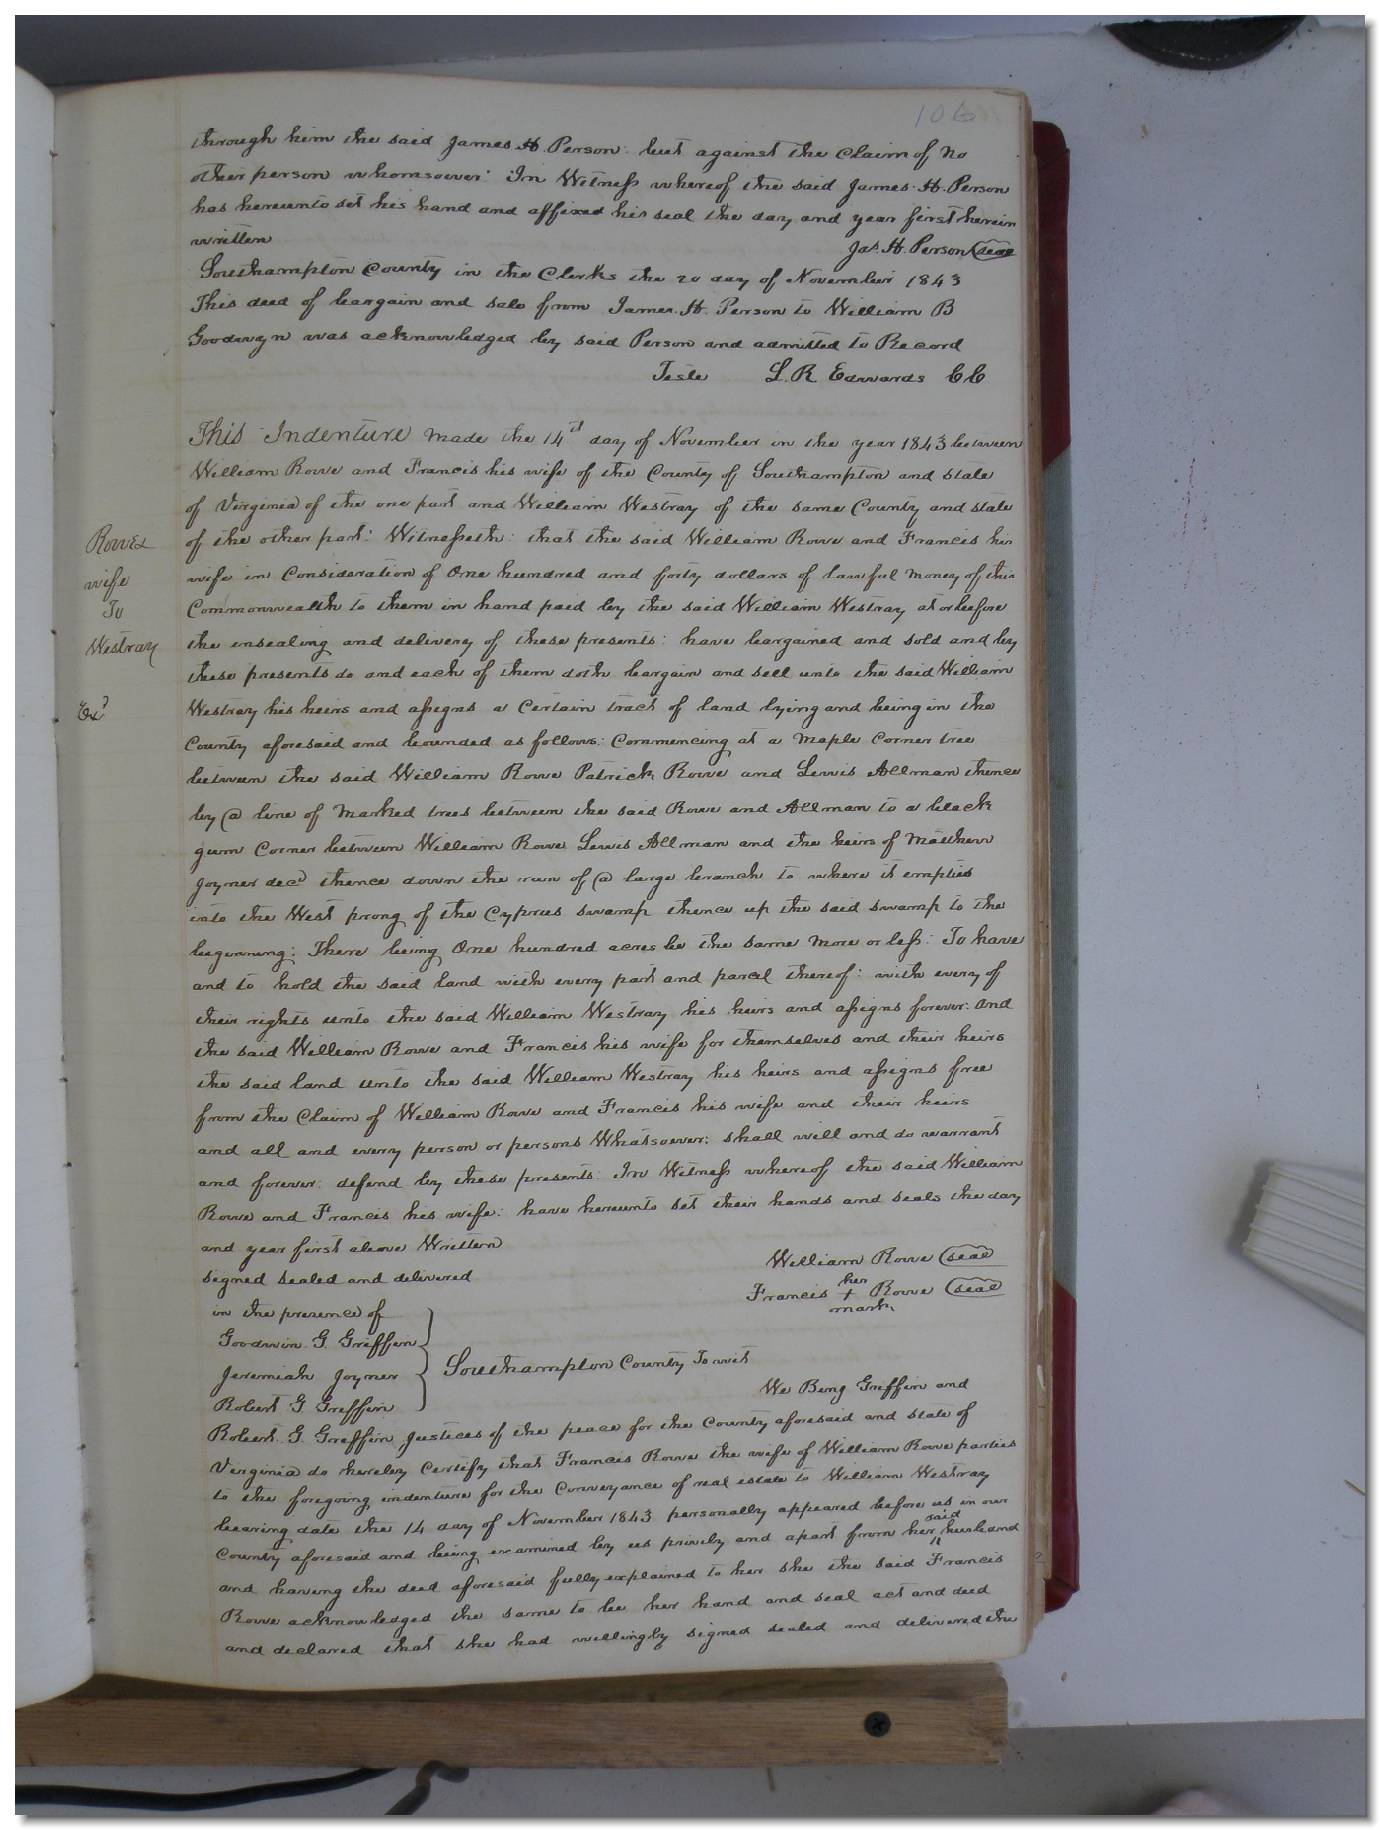 106
through him the said James H Person: but against the Claim of No
other person whomsoever: In Witness whereof the said James. H. Person
has hereunto set his hand and affixed his seal the day and year first herein
written Jas. H. Person (seal
Southampton County in the Clerks the 20 day of November 1843
This deed of bargain and sale from James. H. Person to William B
Goodwyn was acknowledged by said Person and admitted to Record
Teste L. R Edwards CC
This Indenture made the 14th day of November in the year 1843 between
William Rowe and Francis his wife of the County of Southampton and state
of Virginia of the one part and William Westray of the same County and state
Rowe &
of the other part: Witnesseth: that the said William Rowe and Francis his
wife
wife in Consideration of One hundred and forty dollars of lawful money of this
To
Commonwealth to them in hand paid by the said William Westray at or before
Westray
the unsealing and delivery of these presents: have bargained and sold and by
these presents do and each of them doth bargain and sell unto the said William
Exd
Westray his heirs and assigns a Certain tract of land lying and being in the
County aforesaid and bounded as follows: Commencing at a Maple Corner tree
between the said William Rowe Patrick Rowe and Lewis Allman thence
by @ line of Marked trees between the said Rowe and Allman to a black
gum Corner between William Rowe Lewis Allman and the heirs of Mathew
Joyner decd thence down the run of @ large branch to where it empties
into the West prong of the Cyprus swamp thence up the said swamp to the
beginning: There being One hundred acres be the same More or less: To have
and to hold the said land with every part and parcel thereof: with every of
their rights unto the said William Westray his heirs and assigns forever: And
the said William Rowe and Francis his wife for themselves and their heirs
the said land unto the said William Westray his heirs and assigns free
from the Claim of William Rowe and Francis his wife and their heirs
and all and every person or persons Whatsoever: shall will and do warrant
and forever: defend by these presents: In Witness whereof the said William
Rowe and Francis his wife: have hereunto set their hands and seals the day
and year first above Written
William Rowe (seal
signed sealed and delivered
her
Francis + Rowe (seal
mark
in the presence of
Goodwin G. Griffin
Jeremiah Joyner
Southampton County Towit
Robert G. Griffin
We Benj Griffin and
Robert G. Griffin Justices of the peace for the County aforesaid and state of
Virginia do hereby Certify that Francis Rowe the wife of William Rowe parties
to the foregoing indenture for the Conveyance of real estate to William Westray
bearing date the 14 day of November 1843 personally appeared before us in our
said
County aforesaid and being examined by us privily and apart from her husband
and having the deed aforesaid fully explained to her she the said Francis
Rowe acknowledged the same to be her hand and seal act and deed
and declared that she had willingly signed sealed and delivered the